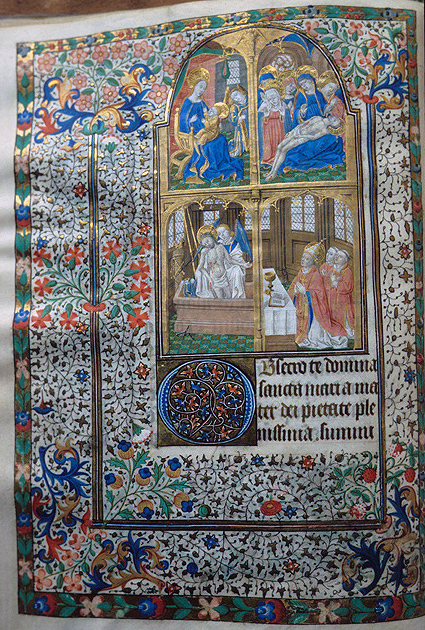 Obsecro te domina
sancta maria ma
ter dei pietate ple
nissima. summi